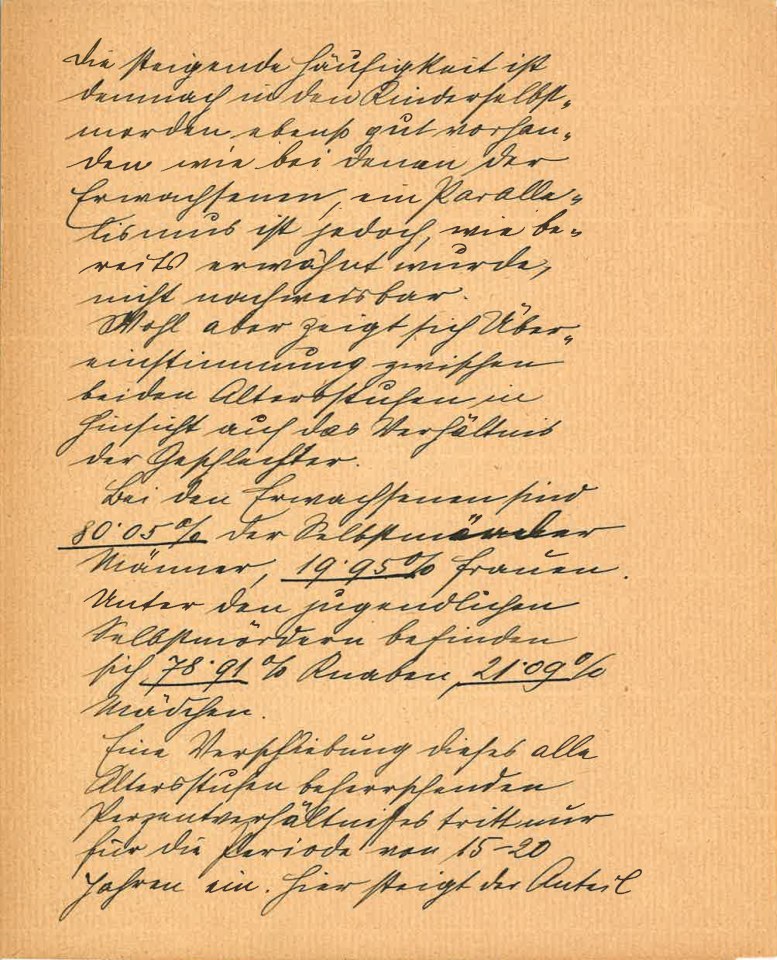 Die steigende Häufigkeit ist
demnach in den Kinderselbst-
morden ebenso gut vorhan-
den wie bei denen der
Erwachsenen, ein Paralle-
lismus ist jedoch, wie be-
reits erwähnt wurde,
nicht nachweisbar.
Wohl aber zeigt sich Über-
einstimmung zwischen
beiden Altersstufen in
Hinsicht auf das Verhältnis
der Geschlechter.
Bei den Erwachsenen sind
80·05% der Selbstmörder
Männer, 19·95% Frauen.
Unter den jugendlichen
Selbstmördern befinden
sich 78·91% Knaben, 21·09%
Mädchen.
Eine Verschiebung dieses alle
Altersstufen beherrschenden
Perzentverhältnisses tritt nur
für die Periode von 15-20
Jahren ein. Hier steigt der Anteil